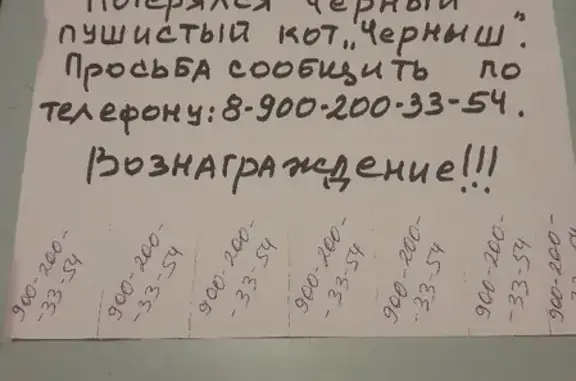 Потерялся чёрный
пушистый кот „Черныш".
Просьба сообщить по
телефону: 8-900-200-33-54.
Вознаграждение!!!
900-200-
-33-54
900-200-
-33-54
900-200-
-33-54
900-200-
-33-54
900-200-
-33-54
900-200-
-33-54
900-200-